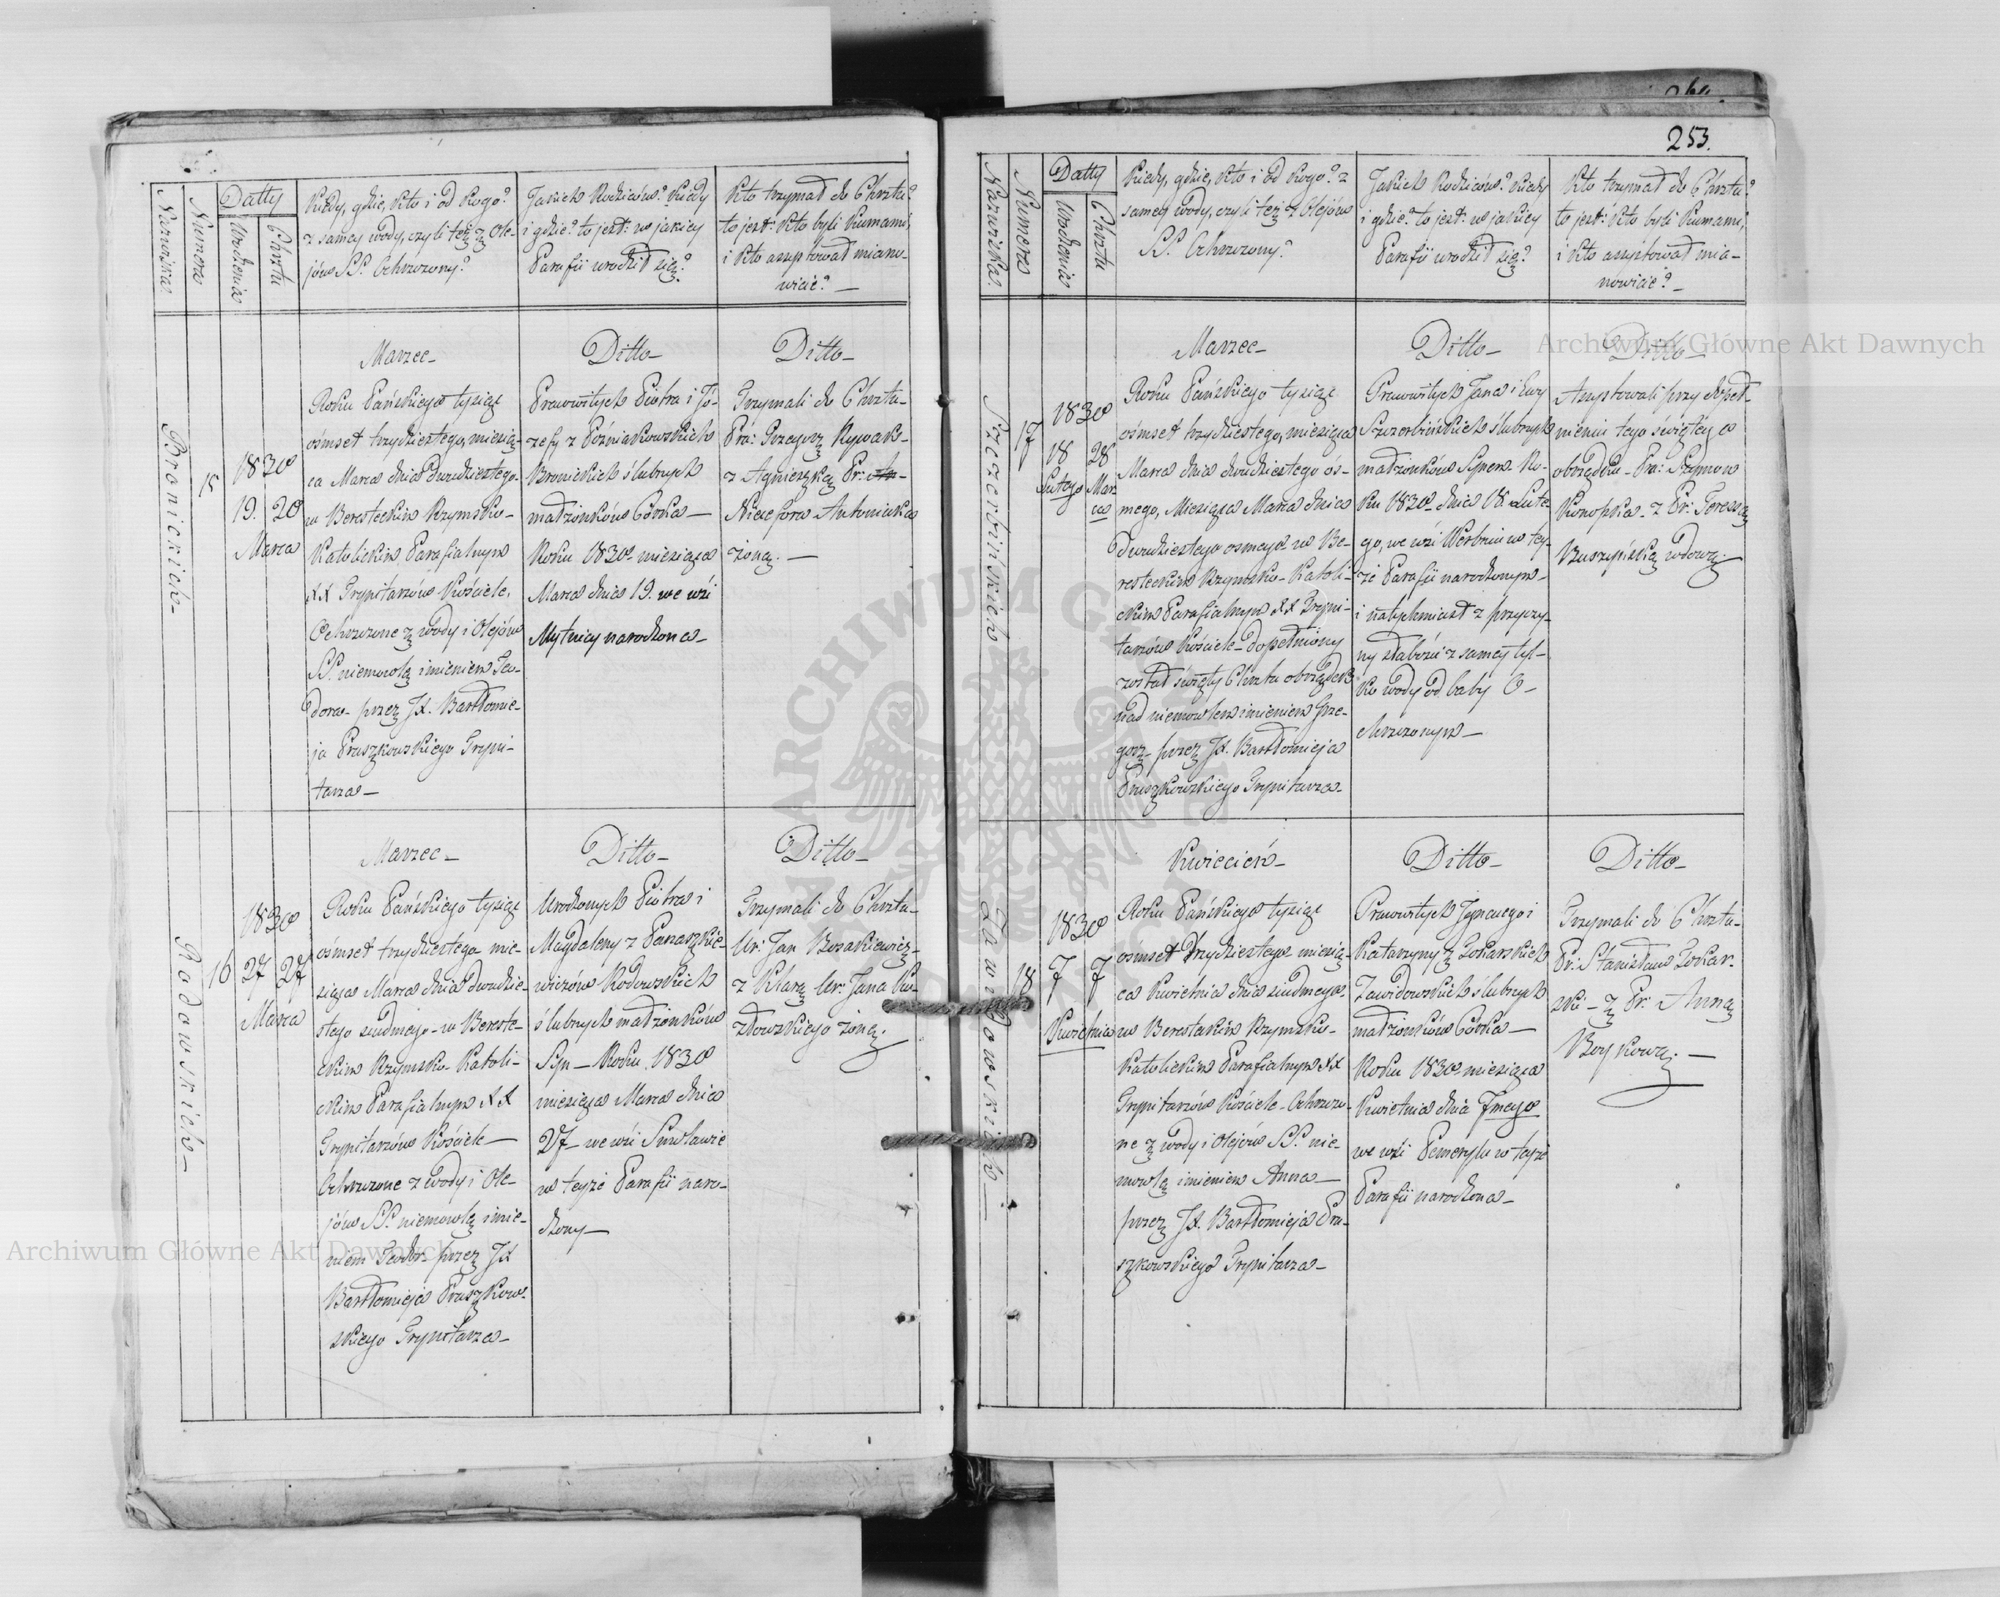 253.
Nazwiska
Numera
Datty
Urodzenia
Chrztu
Kiedy, gdzie, kto i od kogo?
z samey wody, czyli też z Ole-
jów SS. Ochrzczony?
Jakich Rodziców? Kiedy
i gdzie? to jest: w jakiey
Parafii urodził się?
Kto trzymał do Chrztu?
to jest: kto byli Kumami,
i kto assystował miano-
wicie? —
Bronickich
15
1830
19. 20
Marca
Marzec—
Roku Pańskiego tysiąc
ośmset trzydziestego, miesią-
ca Marca dnia dwudziestego
w Beresteckim Rzymsko-
Katolickim Parafialnym
XX Trynitarzów Kościele,
Ochrzczone z wody i Olejów
SS. niemowlę imieniem Teo-
dora- przez JX. Bartłomie-
ja Pruszkowskiego Tryni-
tarza—
Ditto—
Prawowitych Piotra i Jó-
zefy z Poźniakowskich
Bronickich ślubnych
małżonków Córka—
Roku 1830 miesiąca
Marca dnia 19. we wsi
Mytnicy narodzona—
Ditto—
Trzymali do Chrztu-
Pra: Grzegorz Rywak-
z Agnieszką Pr:
Nicefora Antoniuka
żoną.—
Radowskich—
16
1830
27 27
Marca
Marzec—
Roku Pańskiego tysiąc
ośmset trzydziestego mie-
siąca Marca dnia dwudzie-
stego siudmego- w Bereste-
ckim Rzymsko Katoli-
ckim Parafialnym XX
Trynitarzów Kościele—
Ochrzczone z wody i Ole-
jów SS. niemowlę imie-
niem Teodor- przez JX
Bartłomieja Pruszkow-
skiego Trynitarza—
Ditto—
Urodzonych Piotra i
Magdaleny z
Radowskich
ślubnych małżonków
Syn— Roku 1830
miesiąca Marca dnia
27— we wsi Smolawie
w teyże Parafii naro-
dzony—
Ditto—
Trzymali do Chrztu-
Ur: Jan Bosakiewicz-
z Klarą Ur: Jana
żoną.
Nazwiska.
Numera
Datty
Urodzenia
Chrztu
Kiedy, gdzie, kto i od kogo? z
samey wody, czyli też z Olejów
SS. Ochrzczony?
Jakich Rodziców? kiedy
i gdzie? to jest: w jakiey
Parafii urodził się?
Kto trzymał do Chrztu?
to jest: kto byli Kumami,
i kto assystował mia-
nowicie? —
Szczerbińskich
17
1830
18 28
Lutego Mar-
ca
Marzec—
Roku Pańskiego tysiąc
ośmset trzydziestego, miesiąca
Marca dnia dwudziestego ós-
mego, Miesiąca Marca dnia
dwudziestego osmego w Be-
resteckim Rzymsko-Katoli-
ckim Parafialnym XX Tryni-
tarzów Kościele- dopełniony
został święty Chrztu obrządek
nad niemowlem imieniem Grze-
gorz- przez JX. Bartłomieja
Pruszkowskiego Trynitarza-
Ditto—
Prawowitych Jana i Ewy
Szczerbińskich ślubnych
małżonków Synem Ro-
ku 1830 dnia 18. Lute-
go, we wsi Werbniu w tey-
że Parafii narodzonym-
i natychmiast z przyczy-
ny słabości z samey tyl-
ko wody od baby O-
chrzczonym—
Ditto—
Assystowali przy dopeł-
nieniu tego świętego
obrządku- Pra: Szymon
Konopka- z Pr: Teressą
Buszyńską wdową.
Zawidowskich—
18
1830
7 7
Kwietnia
Kwiecień—
Roku Pańskiego tysiąc
ośmset trzydziestego miesią-
ca Kwietnia dnia siudmego-
w Beresteckim Rzymsko-
Katolickim Parafialnym XX
Trynitarzów Kościele- Ochrzczo-
ne z wody i Olejów SS. nie-
mowlę imieniem Anna—
przez JX. Bartłomieja Pru-
szkowskiego Trynitarza—
Ditto—
Prawowitych Ignacego i
Katarzyny z Tokarskich
Zawidowskich ślubnych
małżonków Córka—
Roku 1830 miesiąca
Kwietnia dnia 7mego
we wsi Peremylu w teyże
Parafii narodzona—
Ditto—
Trzymali do Chrztu-
Pr: Stanisław Tokar-
ski- z Pr: Anną
Boykową.—
Archiwum Główne Akt Dawnych
Archiwum Główne Akt Dawnych